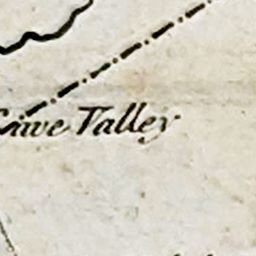 Cave Valley